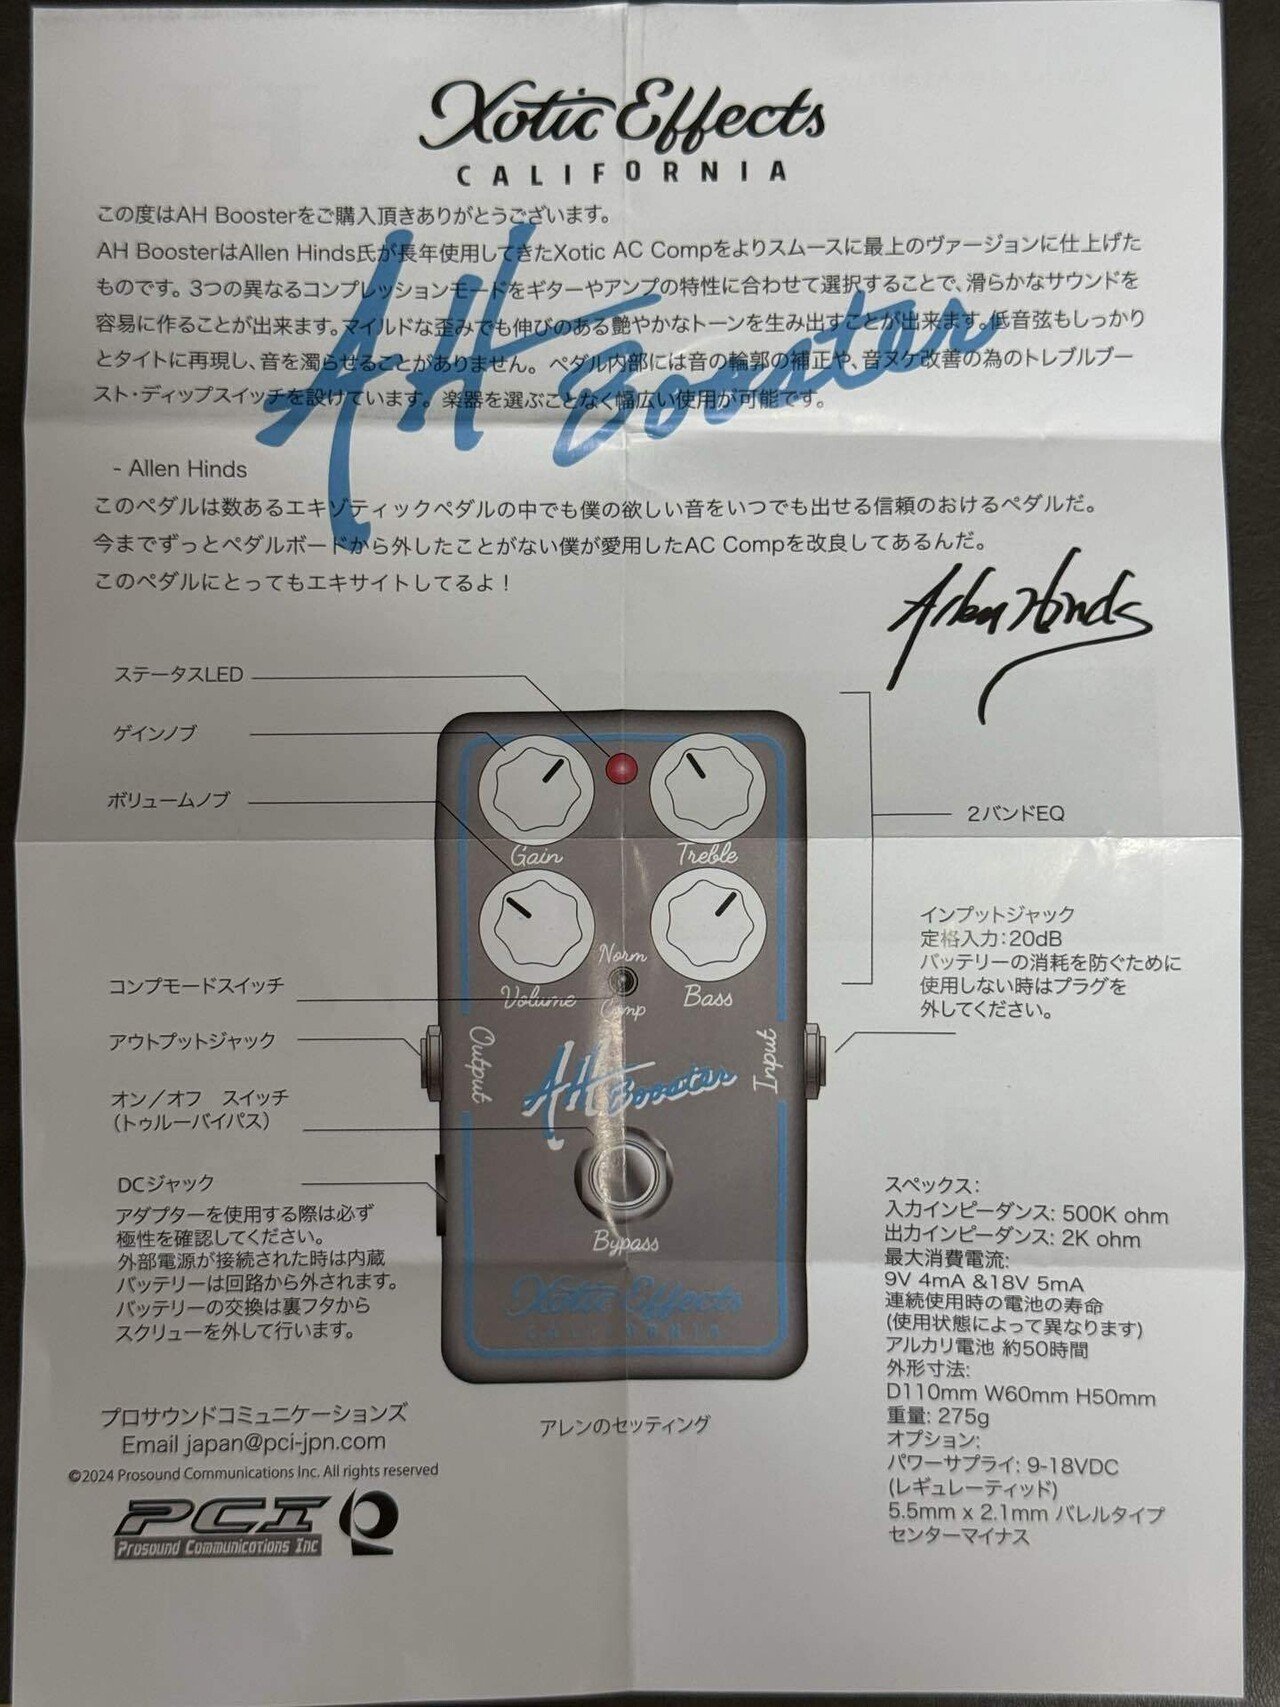 Xotic Effects
CALIFORNIA
この度はAH Boosterをご購入頂きありがとうございます。
AH BoosterはAllen Hinds氏が長年使用してきたXotic AC Compをよりスムースに最上のヴァージョンに仕上げた
ものです。3つの異なるコンプレッションモードをギターやアンプの特性に合わせて選択することで、滑らかなサウンドを
容易に作ることが出来ます。マイルドな歪みでも伸びのある艶やかなトーンを生み出すことが出来ます。低音弦もしっかり
とタイトに再現し、音を濁らせることがありません。ペダル内部には音の輪郭の補正や、音ヌケ改善の為のトレブルブー
スト・ディップスイッチを設けています。楽器を選ぶことなく幅広い使用が可能です。
AH Booster
- Allen Hinds
このペダルは数あるエキゾティックペダルの中でも僕の欲しい音をいつでも出せる信頼のおけるペダルだ。
今までずっとペダルボードから外したことがない僕が愛用したAC Compを改良してあるんだ。
このペダルにとってもエキサイトしてるよ！
Allen Hinds
ステータスLED
ゲインノブ
ボリュームノブ
2バンドEQ
Gain
Treble
Volume
Norm
Comp
Bass
インプットジャック
定格入力：20dB
バッテリーの消耗を防ぐために
使用しない時はプラグを
外してください。
コンプモードスイッチ
アウトプットジャック
オン／オフ　スイッチ
（トゥルーバイパス）
Output
Input
AH Booster
Bypass
Xotic Effects
CALIFORNIA
DCジャック
アダプターを使用する際は必ず
極性を確認してください。
外部電源が接続された時は内蔵
バッテリーは回路から外されます。
バッテリーの交換は裏フタから
スクリューを外して行います。
スペックス:
入力インピーダンス: 500K ohm
出力インピーダンス: 2K ohm
最大消費電流:
9V 4mA &18V 5mA
連続使用時の電池の寿命
(使用状態によって異なります)
アルカリ電池 約50時間
外形寸法:
D110mm W60mm H50mm
重量: 275g
オプション:
パワーサプライ: 9-18VDC
(レギュレーティッド)
5.5mm x 2.1mm バレルタイプ
センターマイナス
アレンのセッティング
プロサウンドコミュニケーションズ
Email japan@pci-jpn.com
©2024 Prosound Communications Inc. All rights reserved
PCI
Prosound Communications Inc